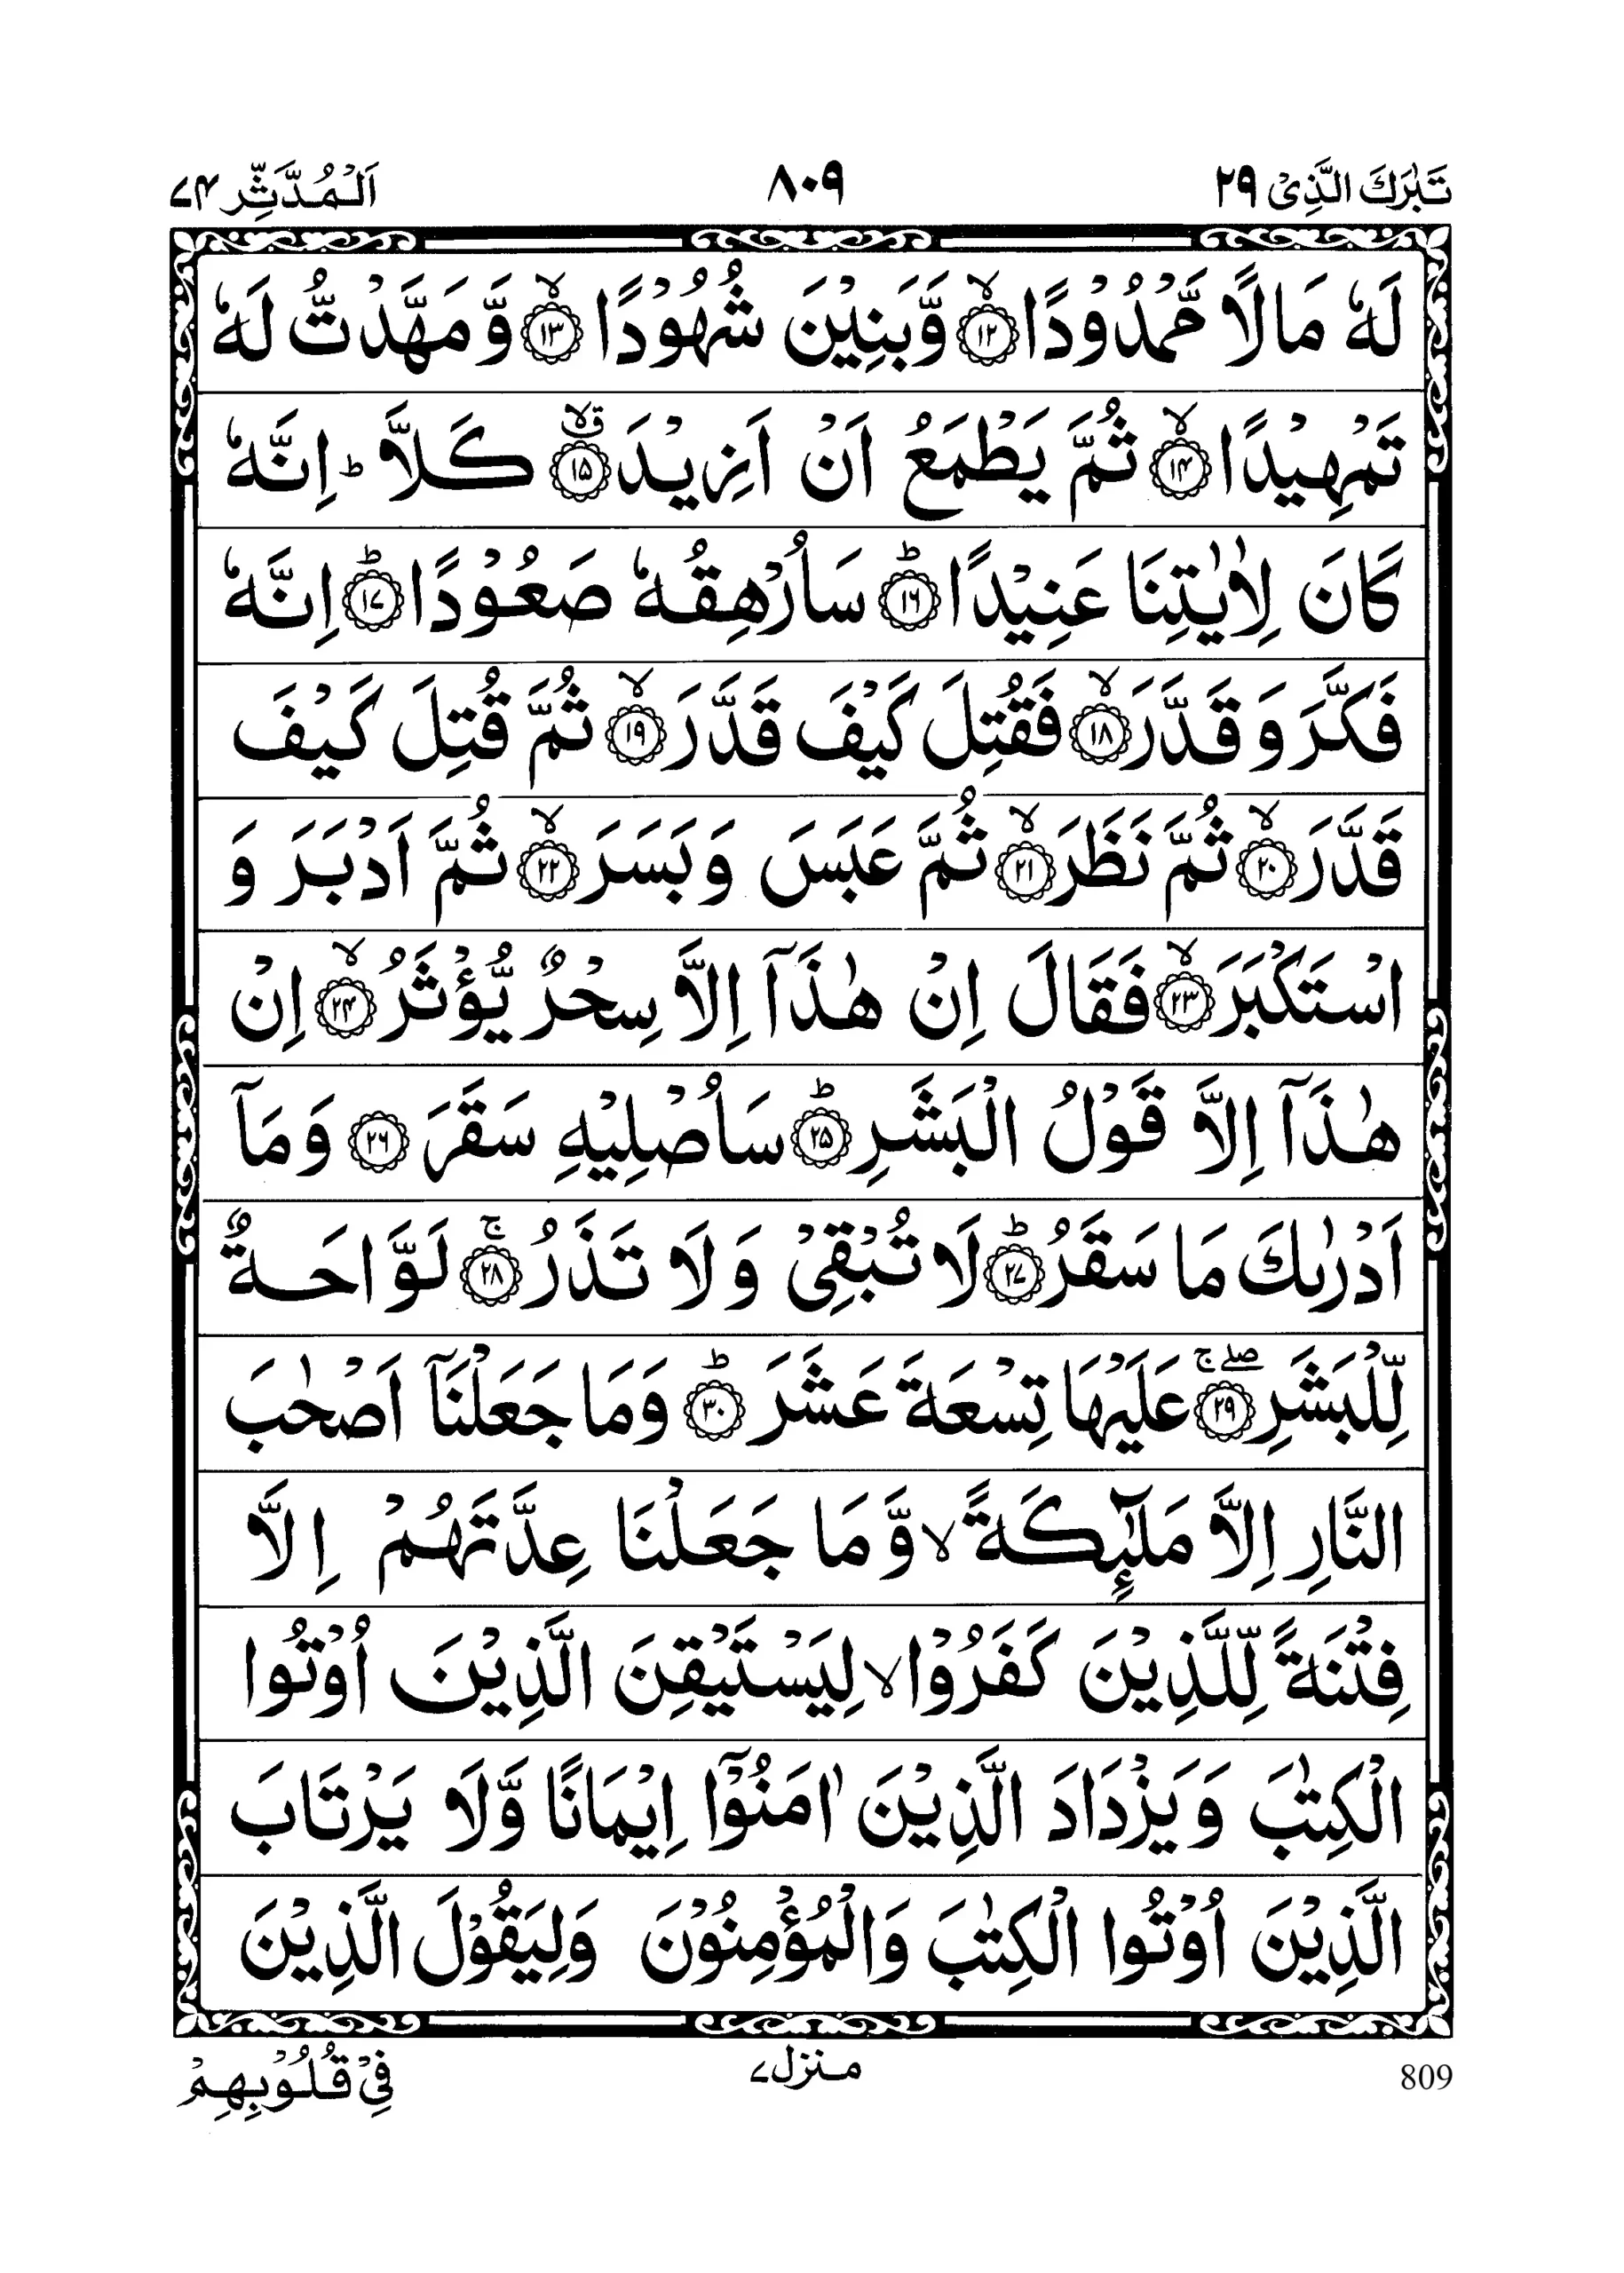 تَبٰرَكَ الَّذِیْ ۲۹
۸۰۹
اَلْمُدَّثِّر ۷۴
لَهٗ مَالًا مَّمْدُوْدًا ۙ﴿۱۲﴾ وَّبَنِیْنَ شُهُوْدًا ۙ﴿۱۳﴾ وَّ مَهَّدْتُّ لَهٗ
تَمْهِیْدًا ۙ﴿۱۴﴾ ثُمَّ یَطْمَعُ اَنْ اَزِیْدَ ۙق﴿۱۵﴾ كَلَّا ؕ اِنَّهٗ
كَانَ لِاٰیٰتِنَا عَنِیْدًا ؕ﴿۱۶﴾ سَاُرْهِقُهٗ صَعُوْدًا ؕ﴿۱۷﴾ اِنَّهٗ
فَكَّرَ وَ قَدَّرَ ۙ﴿۱۸﴾ فَقُتِلَ كَیْفَ قَدَّرَ ۙ﴿۱۹﴾ ثُمَّ قُتِلَ كَیْفَ
قَدَّرَ ۙ﴿۲۰﴾ ثُمَّ نَظَرَ ۙ﴿۲۱﴾ ثُمَّ عَبَسَ وَ بَسَرَ ۙ﴿۲۲﴾ ثُمَّ اَدْبَرَ وَ
اسْتَكْبَرَ ۙ﴿۲۳﴾ فَقَالَ اِنْ هٰذَاۤ اِلَّا سِحْرٌ یُّؤْثَرُ ۙ﴿۲۴﴾ اِنْ
هٰذَاۤ اِلَّا قَوْلُ الْبَشَرِ ؕ﴿۲۵﴾ سَاُصْلِیْهِ سَقَرَ ﴿۲۶﴾ وَمَاۤ
اَدْرٰىكَ مَا سَقَرُ ؕ﴿۲۷﴾ لَا تُبْقِیْ وَ لَا تَذَرُ ۚ﴿۲۸﴾ لَوَّاحَةٌ
لِّلْبَشَرِ ۖۚ﴿۲۹﴾ عَلَیْهَا تِسْعَةَ عَشَرَ ؕ﴿۳۰﴾ وَمَا جَعَلْنَاۤ اَصْحٰبَ
النَّارِ اِلَّا مَلٰٓىِٕكَةً ۙ وَّ مَا جَعَلْنَا عِدَّتَهُمْ اِلَّا
فِتْنَةً لِّلَّذِیْنَ كَفَرُوْا ۙ لِیَسْتَیْقِنَ الَّذِیْنَ اُوْتُوا
الْكِتٰبَ وَ یَزْدَادَ الَّذِیْنَ اٰمَنُوْۤا اِیْمَانًا وَّ لَا یَرْتَابَ
الَّذِیْنَ اُوْتُوا الْكِتٰبَ وَالْمُؤْمِنُوْنَ وَلِیَقُوْلَ الَّذِیْنَ
809
منزل ۷
فِیْ قُلُوْبِهِمْ